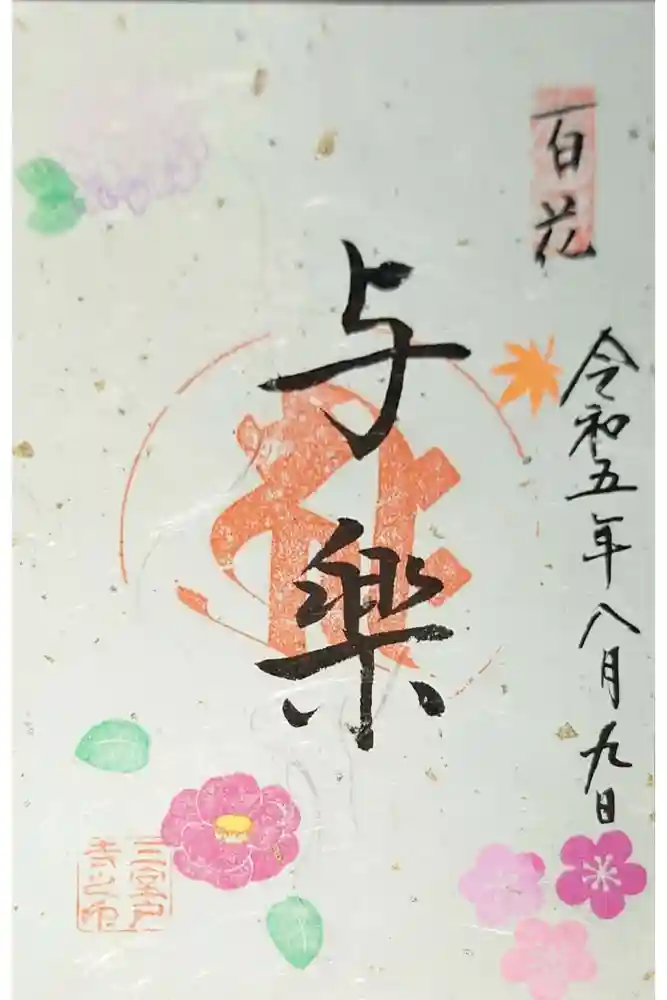 百花
令和五年八月九日
与楽
三室戸
寺之印